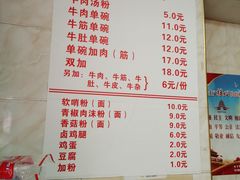 牛肉汤粉
牛肉单碗 5.0元
牛筋单碗 11.0元
牛肚单碗 12.0元
单碗加肉(筋) 12.0元
双加 17.0元
18.0元
另加:牛肉、牛筋、牛肚、牛皮、牛杂 6元/份
软哨粉(面) 10.0元
青椒肉沫粉(面) 9.0元
香菇粉(面) 9.0元
卤鸡腿 6.0元
鸡蛋 2.0元
豆腐 2.0元
加粉 1.0元